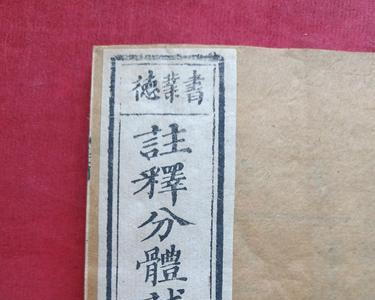 書業德
註釋分體